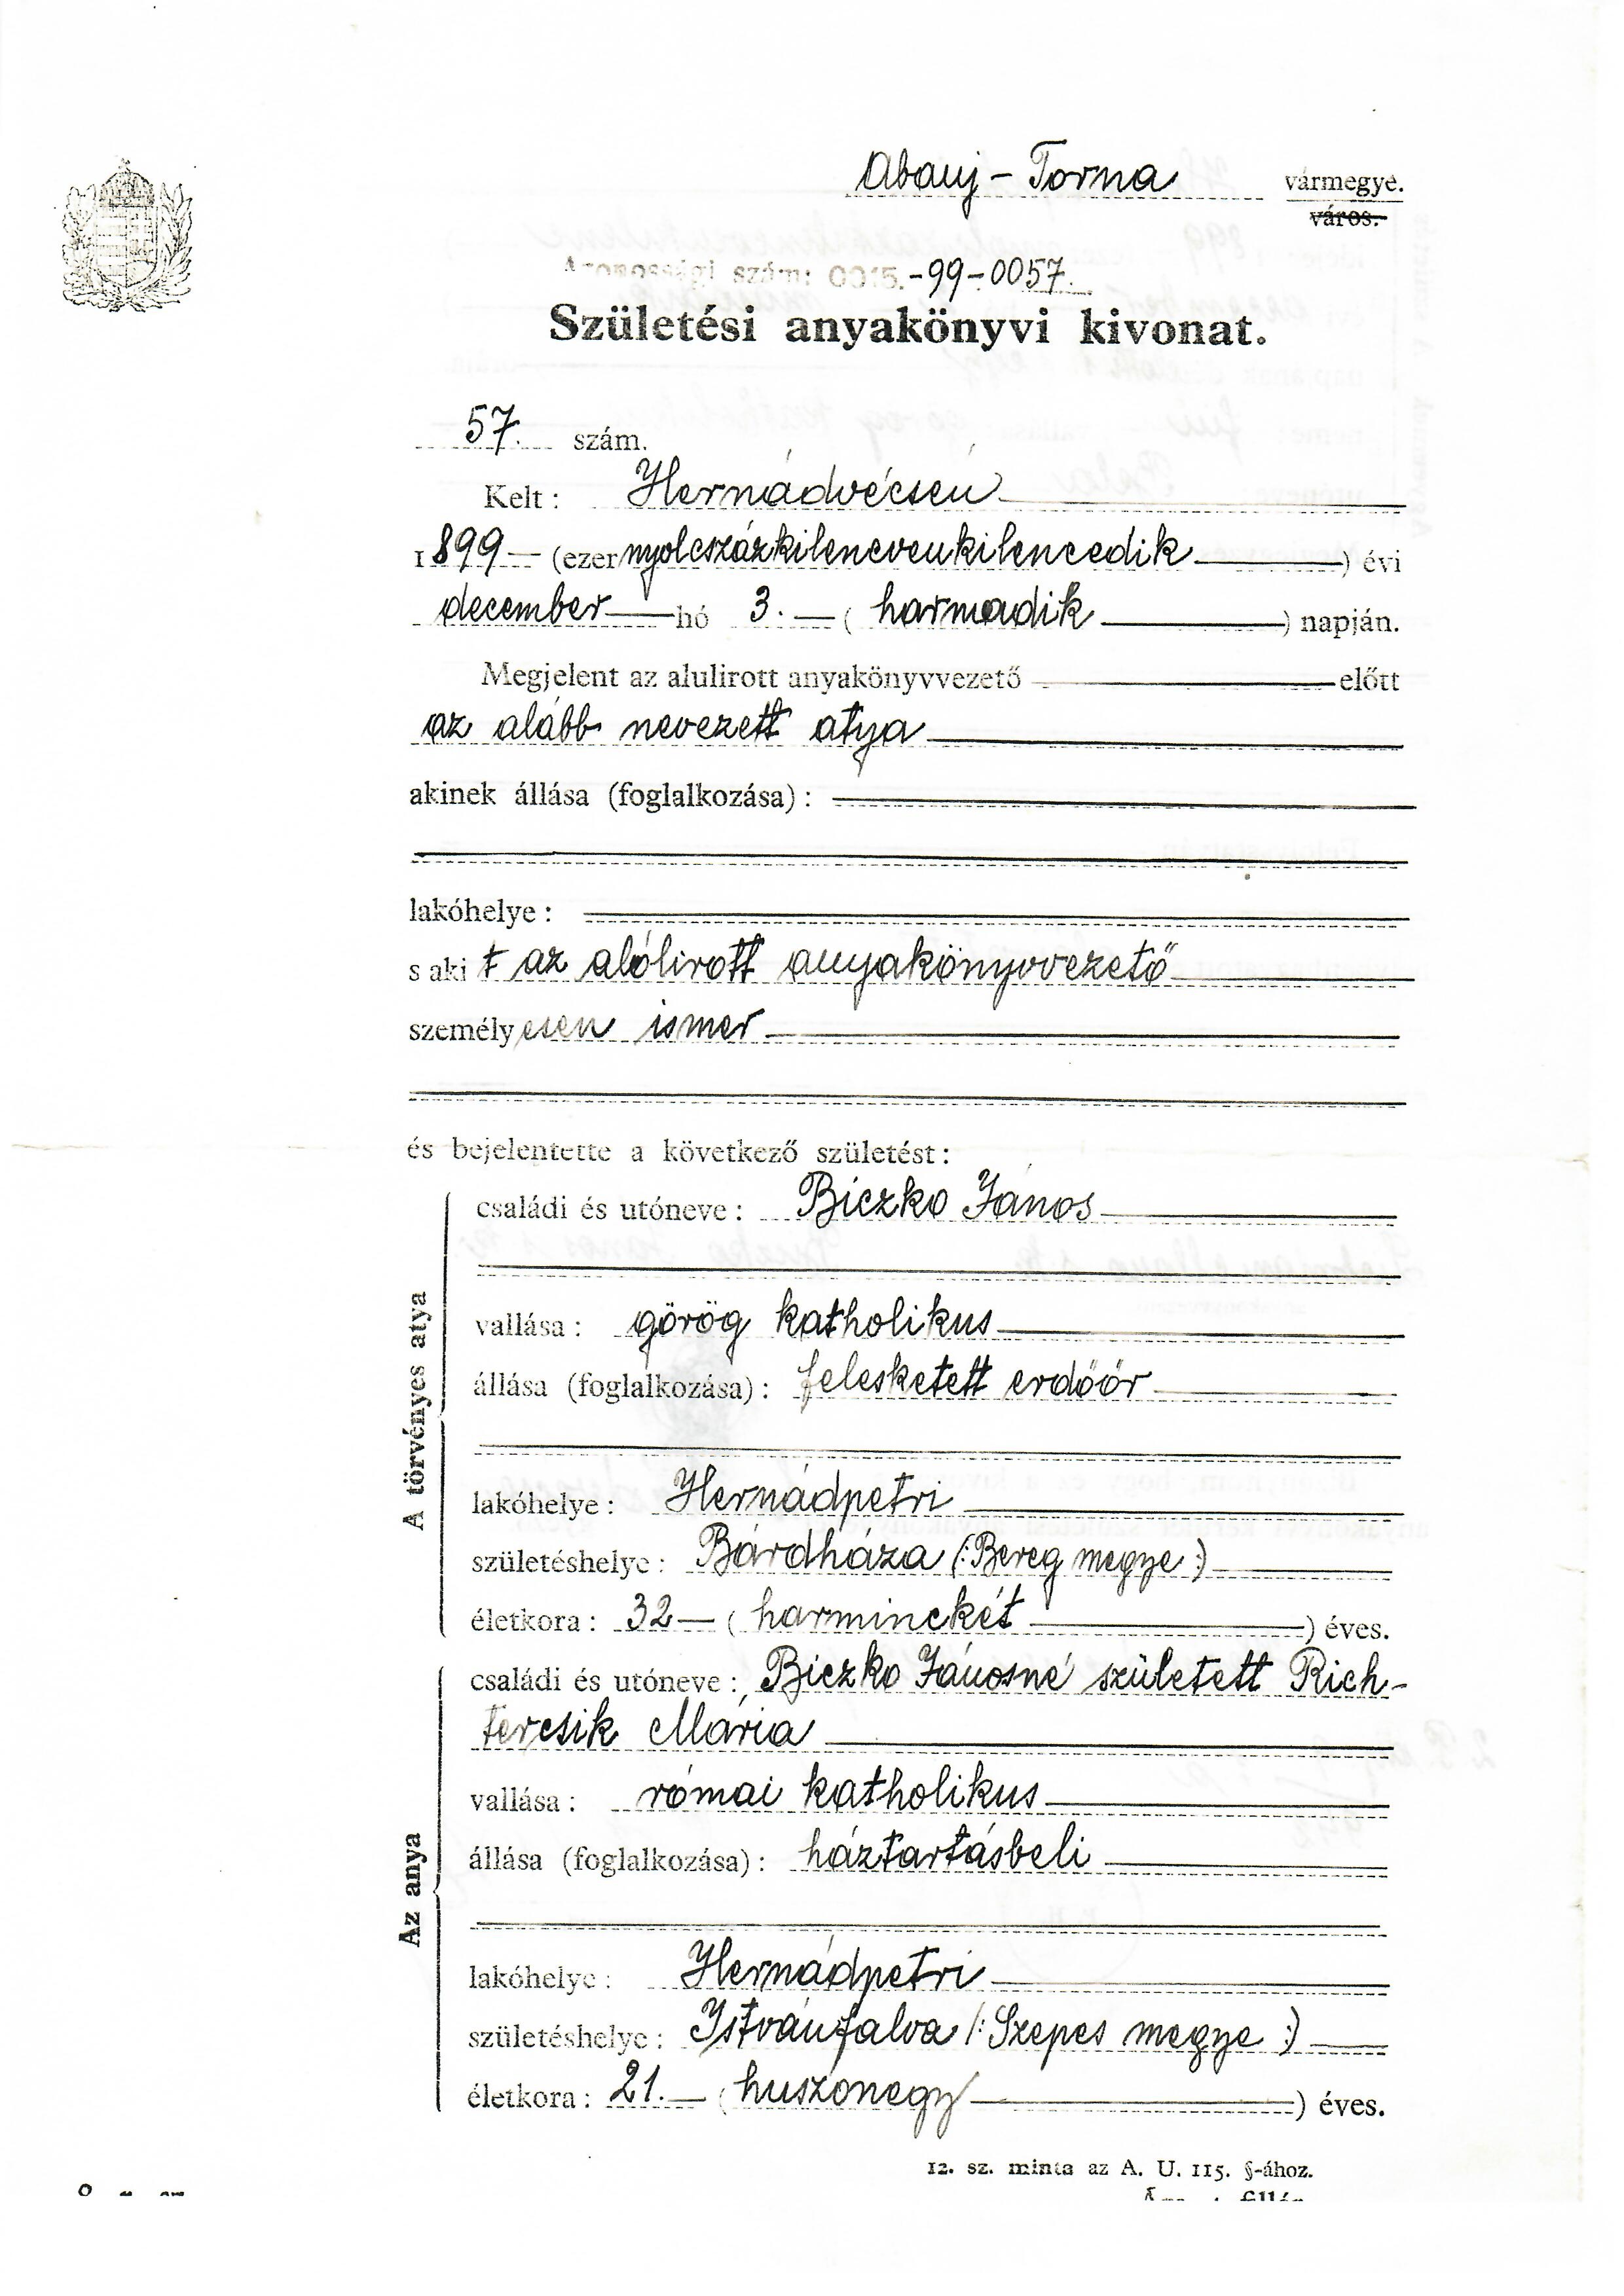 Abauj - Torna vármegye.
város.
Azonossági szám: 0015.-99-0057.
Születési anyakönyvi kivonat.
57. szám.
Kelt: Hernádvécsen
1899 — (ezernyolcszázkilencvenkilencedik) évi
december hó 3. — (harmadik) napján.
Megjelent az alulirott anyakönyvvezető előtt
az alább nevezett atya
akinek állása (foglalkozása):
lakóhelye:
s akit az alólirott anyakönyvvezető
személyesen ismer
és bejelentette a következő születést:
A törvényes atya
családi és utóneve: Biczko János
vallása: görög katholikus
állása (foglalkozása): felesketett erdőőr
lakóhelye: Hernádpetri
születéshelye: Bárdháza (: Bereg megye :)
életkora: 32 — (harminckét) éves.
Az anya
családi és utóneve: Biczko Jánosné született Rich-
tercsik Mária
vallása: római katholikus
állása (foglalkozása): háztartásbeli
lakóhelye: Hernádpetri
születéshelye: Istvánfalva (: Szepes megye :)
életkora: 21. — (huszonegy) éves.
12. sz. minta az A. U. 115. §-ához.